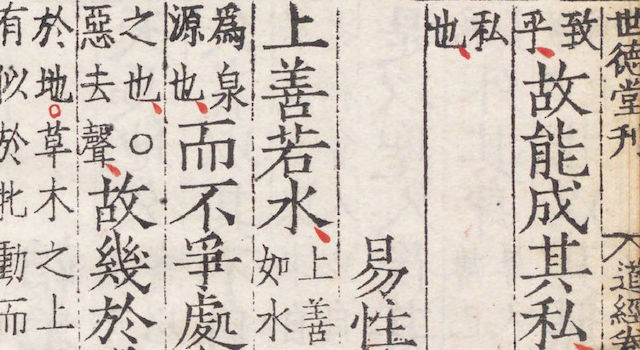 世德堂刊 道經
致
乎
故能成其私
私
也
易性
上善若水
上善
如水
爲泉
源也
而不爭處
之也○
惡去聲
故幾於
於地草木之上
有似於牝動而